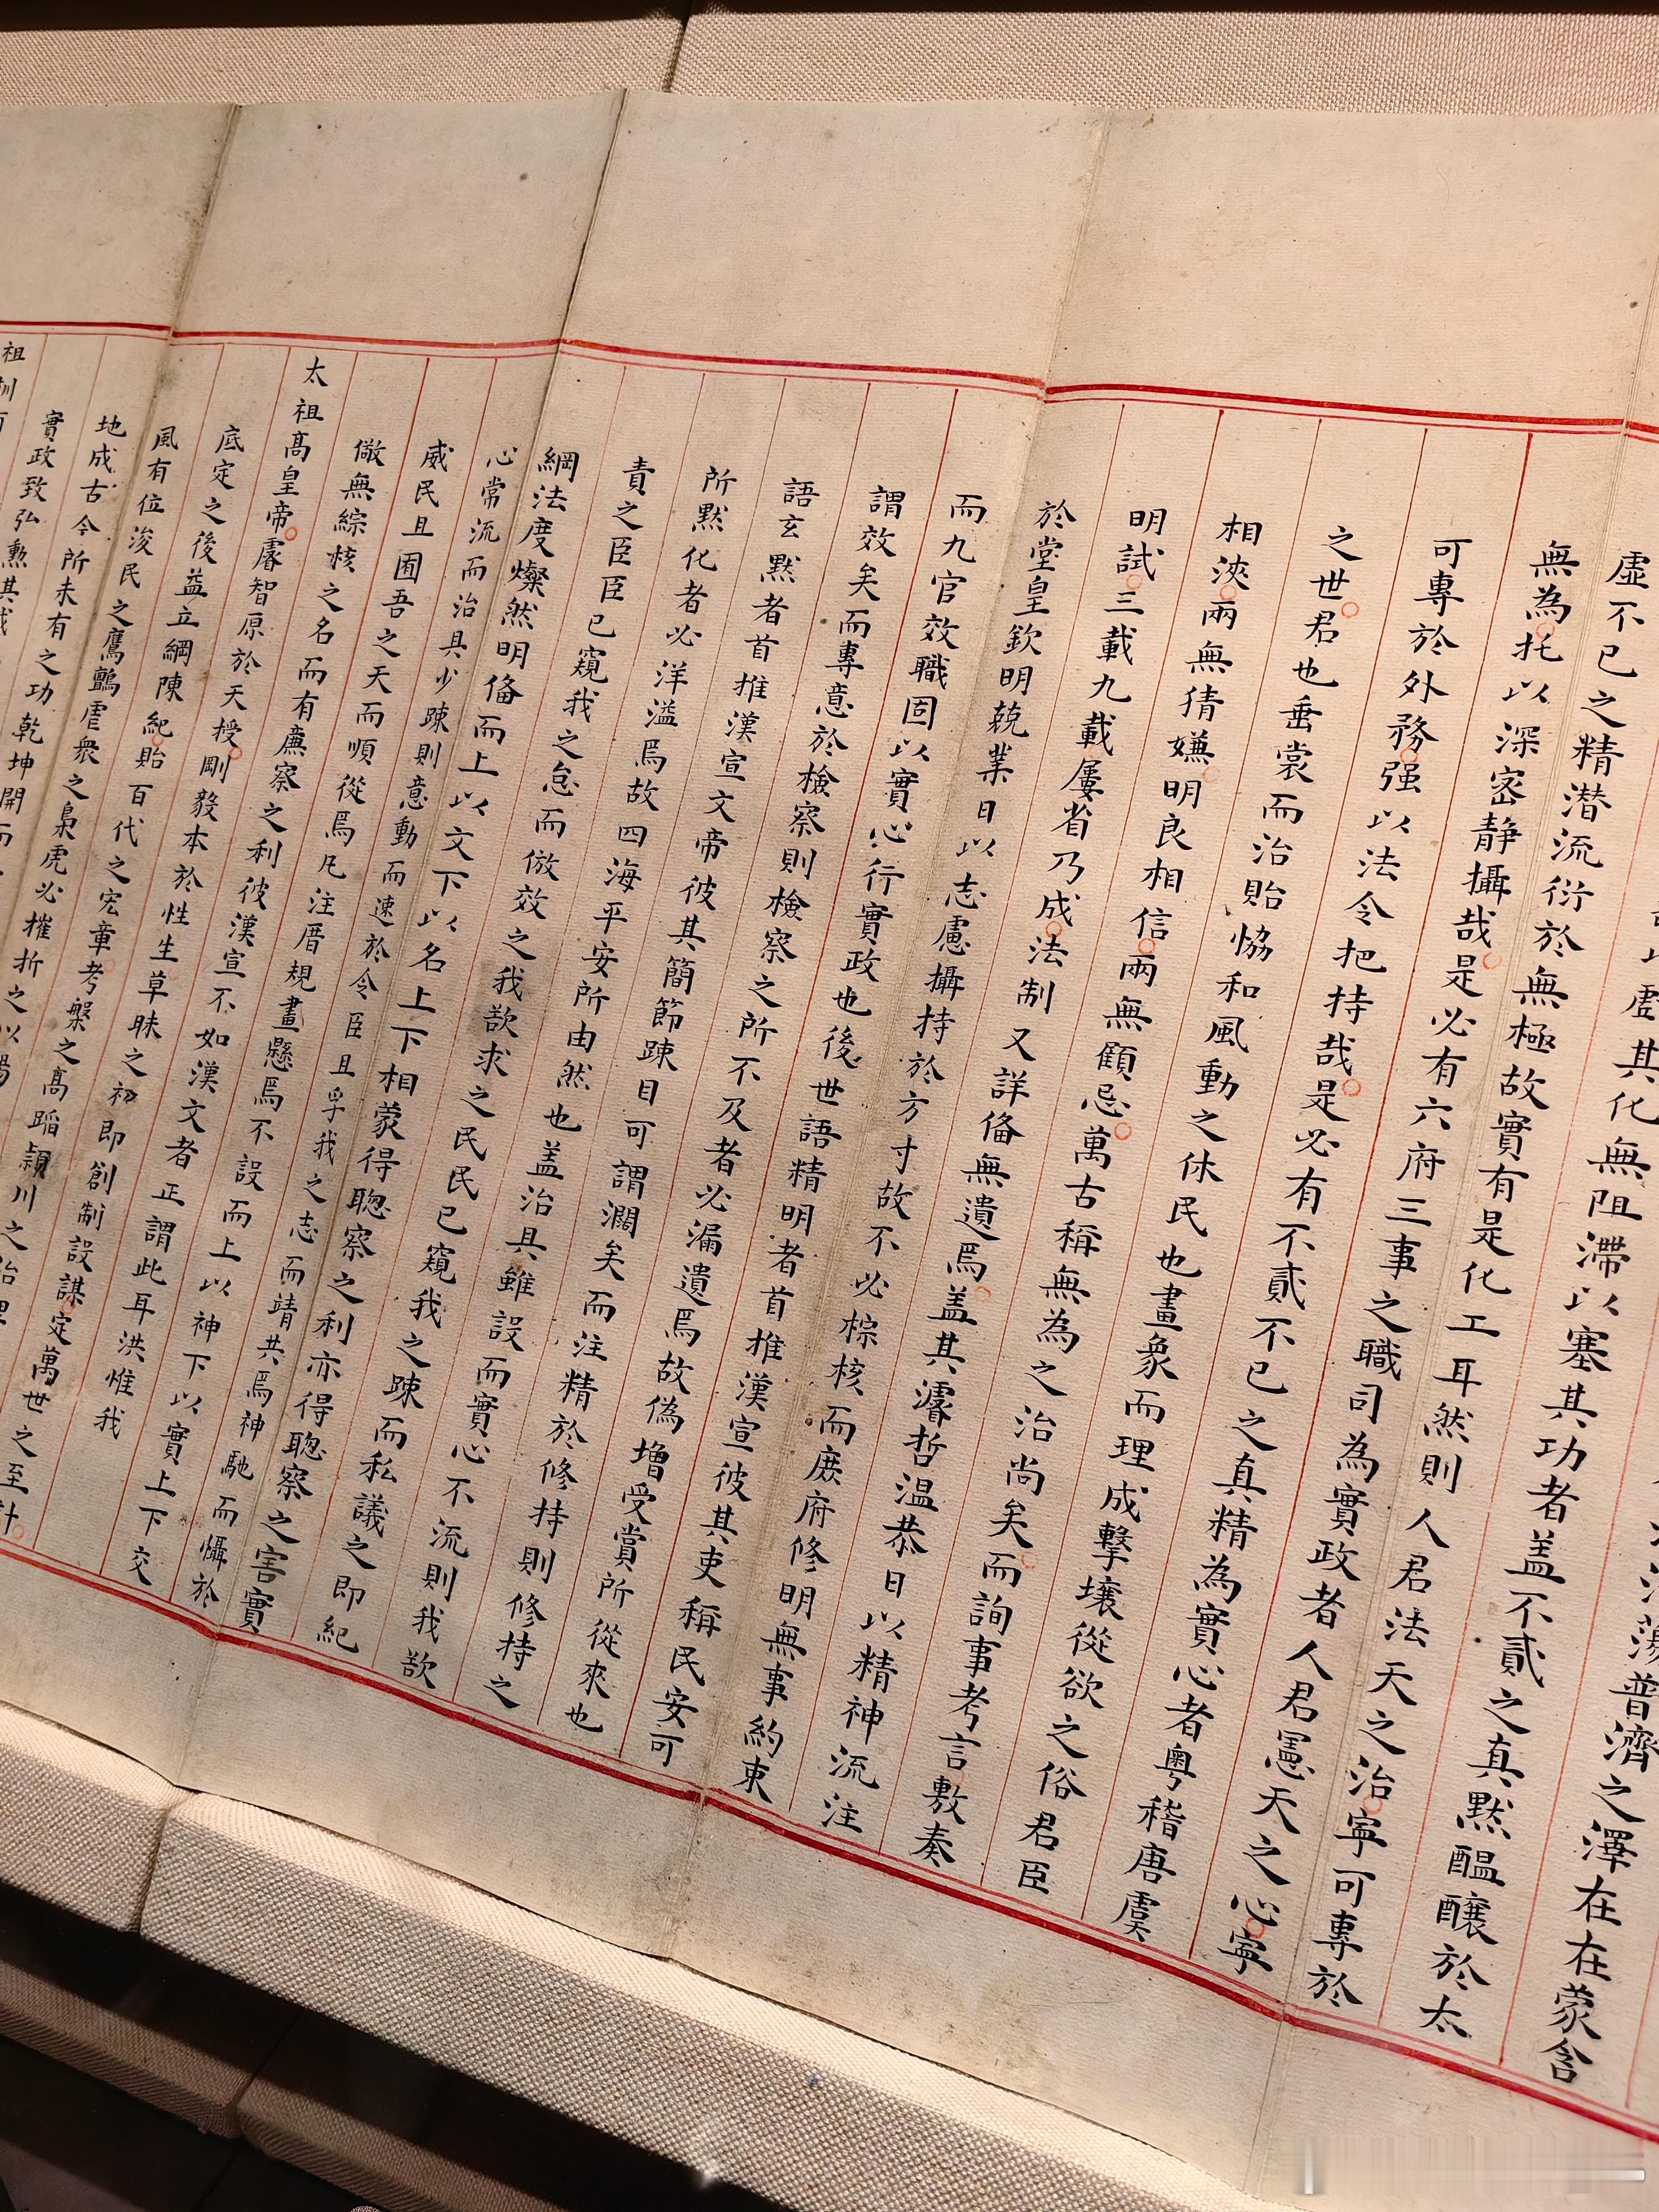 可以虛其化無阻滯以塞其功者盖不貳之真默醖釀於太
虛不已之精潜流衍於無極故實有是化工耳然則人君法天之治寧可專於
無為托以深密静攝哉是必有六府三事之職司為實政者人君憲天之心寧
可專於外務强以法令把持哉是必有不貳不已之真精為實心者粤稽唐虞
之世君也垂裳而治貽恊和風動之休民也畫象而理成擊壤從欲之俗君臣
相浹兩無猜嫌明良相信兩無顧忌萬古稱無為之治尚矣而詢事考言敷奏
明試三載九載屢省乃成法制又詳俻無遺焉盖其濬哲温恭日以精神流注
於堂皇欽明兢業日以志慮攝持於方寸故不必棕核而庶府修明無事約束
而九官效職固以實心行實政也後世語精明者首推漢宣彼其吏稱民安可
謂效矣而專意於檢察則檢察之所不及者必漏遺焉故偽增受賞所從來也
語玄默者首推漢宣文帝彼其簡節踈目可謂濶矣而注精於修持則修持之
所默化者必洋溢焉故四海平安所由然也盖治具雖設而實心不流則我欲
責之臣臣已窺我之怠而倣效之我欲求之民民已窺我之踈而私議之即紀
綱法度燦然明俻而上以文下以名上下相蒙得聰察之利亦得聰察之害實
心常流而治具少踈則意動而速於令臣且孚我之志而靖共焉神馳而懾於
威民且囿吾之天而順從焉凡注厝規畫懸焉不設而上以神下以實上下交
儆無綜核之名而有廉察之利彼漢宣不如漢文者正謂此耳洪惟我
太祖高皇帝睿智原於天授剛毅本於性生草昧之初即創制設謀定萬世之至計
底定之後益立綱陳紀貽百代之宏章考槃之高蹈潁川之治理
風有位浚民之鷹鸇虐衆之梟虎必摧折之以
地成古今所未有之功乾坤開而
實政致弘勲其我
祖訓有